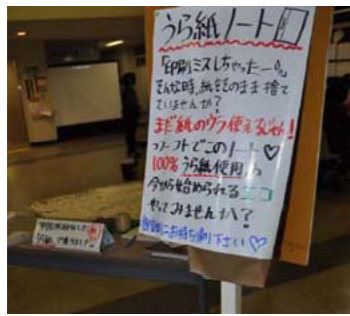 うら紙ノート
「印刷ミスしちゃったー。」
そんな時、紙をそのまま捨て
ていませんか?
まだ紙のウラ使えるじゃん!
でこのノート♡
100% うら紙使用
今から始められるエコ
やってみませんか?
にお持ち帰り下さい♡